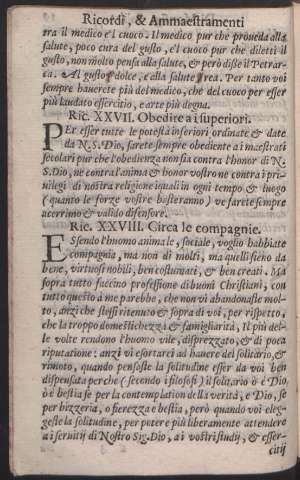 Ricordi, & Ammaestramenti
tra il medico e'l cuoco. Il medico pur che proueda alla
salute, poco cura del gusto, e'l cuoco pur che diletti il
gusto, non molto pensa alla salute, & però disse il Petrar-
ca. Al gusto dolce, e alla salute rea. Per tanto voi
sempre hauerete più del medico, che del cuoco per esser
più laudato essercitio, e arte più degna.
Ric. XXVII. Obedire a i superiori.
PEr esser tutte le potestà inferiori ordinate & date
da N.S. Dio, sarete sempre obediente a i maestrati
secolari pur che l'obedienza non sia contra l'honor di N.
S. Dio, ne contra l'anima & honor vostro ne contra i pri-
uilegi di nostra religione i quali in ogni tempo & luogo
(quanto le forze vostre basteranno) ve sarete sempre
acerrimo & valido difensore.
Ric. XXVIII. Circa le compagnie.
ESsendo l'huomo animale, sociale, voglio habbiate
compagnia, ma non di molti, ma quelli sieno da
bene, virtuosi nobili, ben costumati, & ben creati. Ma
sopra tutto faccino professione di buoni Christiani, con
tutto questo a me parebbe, che non vi abandonaste mol-
to, anzi che stessi ritenuto & sopra di voi, per rispetto,
che la troppo domestichezza & famigliarità, Il più del-
le volte rendono l'huomo vile, disprezzato, & di poca
riputatione: anzi vi esortarei ad hauere del solitario, &
rimoto, quando pensaste la solitudine esser da voi ben
dispensata perche (secondo i filosofi) il solitario ò è Dio,
ò è bestia se per la contemplation della verità, e Dio, se
per bizzeria, o fierezza e bestia, però quando voi eleg-
geste la solitudine, per potere più liberamente attendere
a i seruitij di Nostro Sig. Dio, a i vostri studij, & esser-
citij